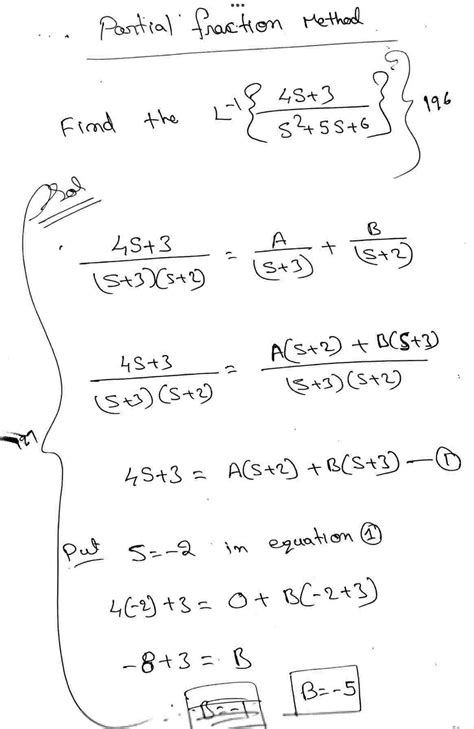 ... Partial fraction Method
Find the L⁻¹{ 4S+3 / S²+5S+6 } 196
Sol
4S+3 / (S+3)(S+2) = A / (S+3) + B / (S+2)
4S+3 / (S+3)(S+2) = A(S+2) + B(S+3) / (S+3)(S+2)
4S+3 = A(S+2) + B(S+3) — ①
Put S=-2 in equation ①
4(-2)+3 = 0 + B(-2+3)
-8+3 = B
B=-1 B=-5